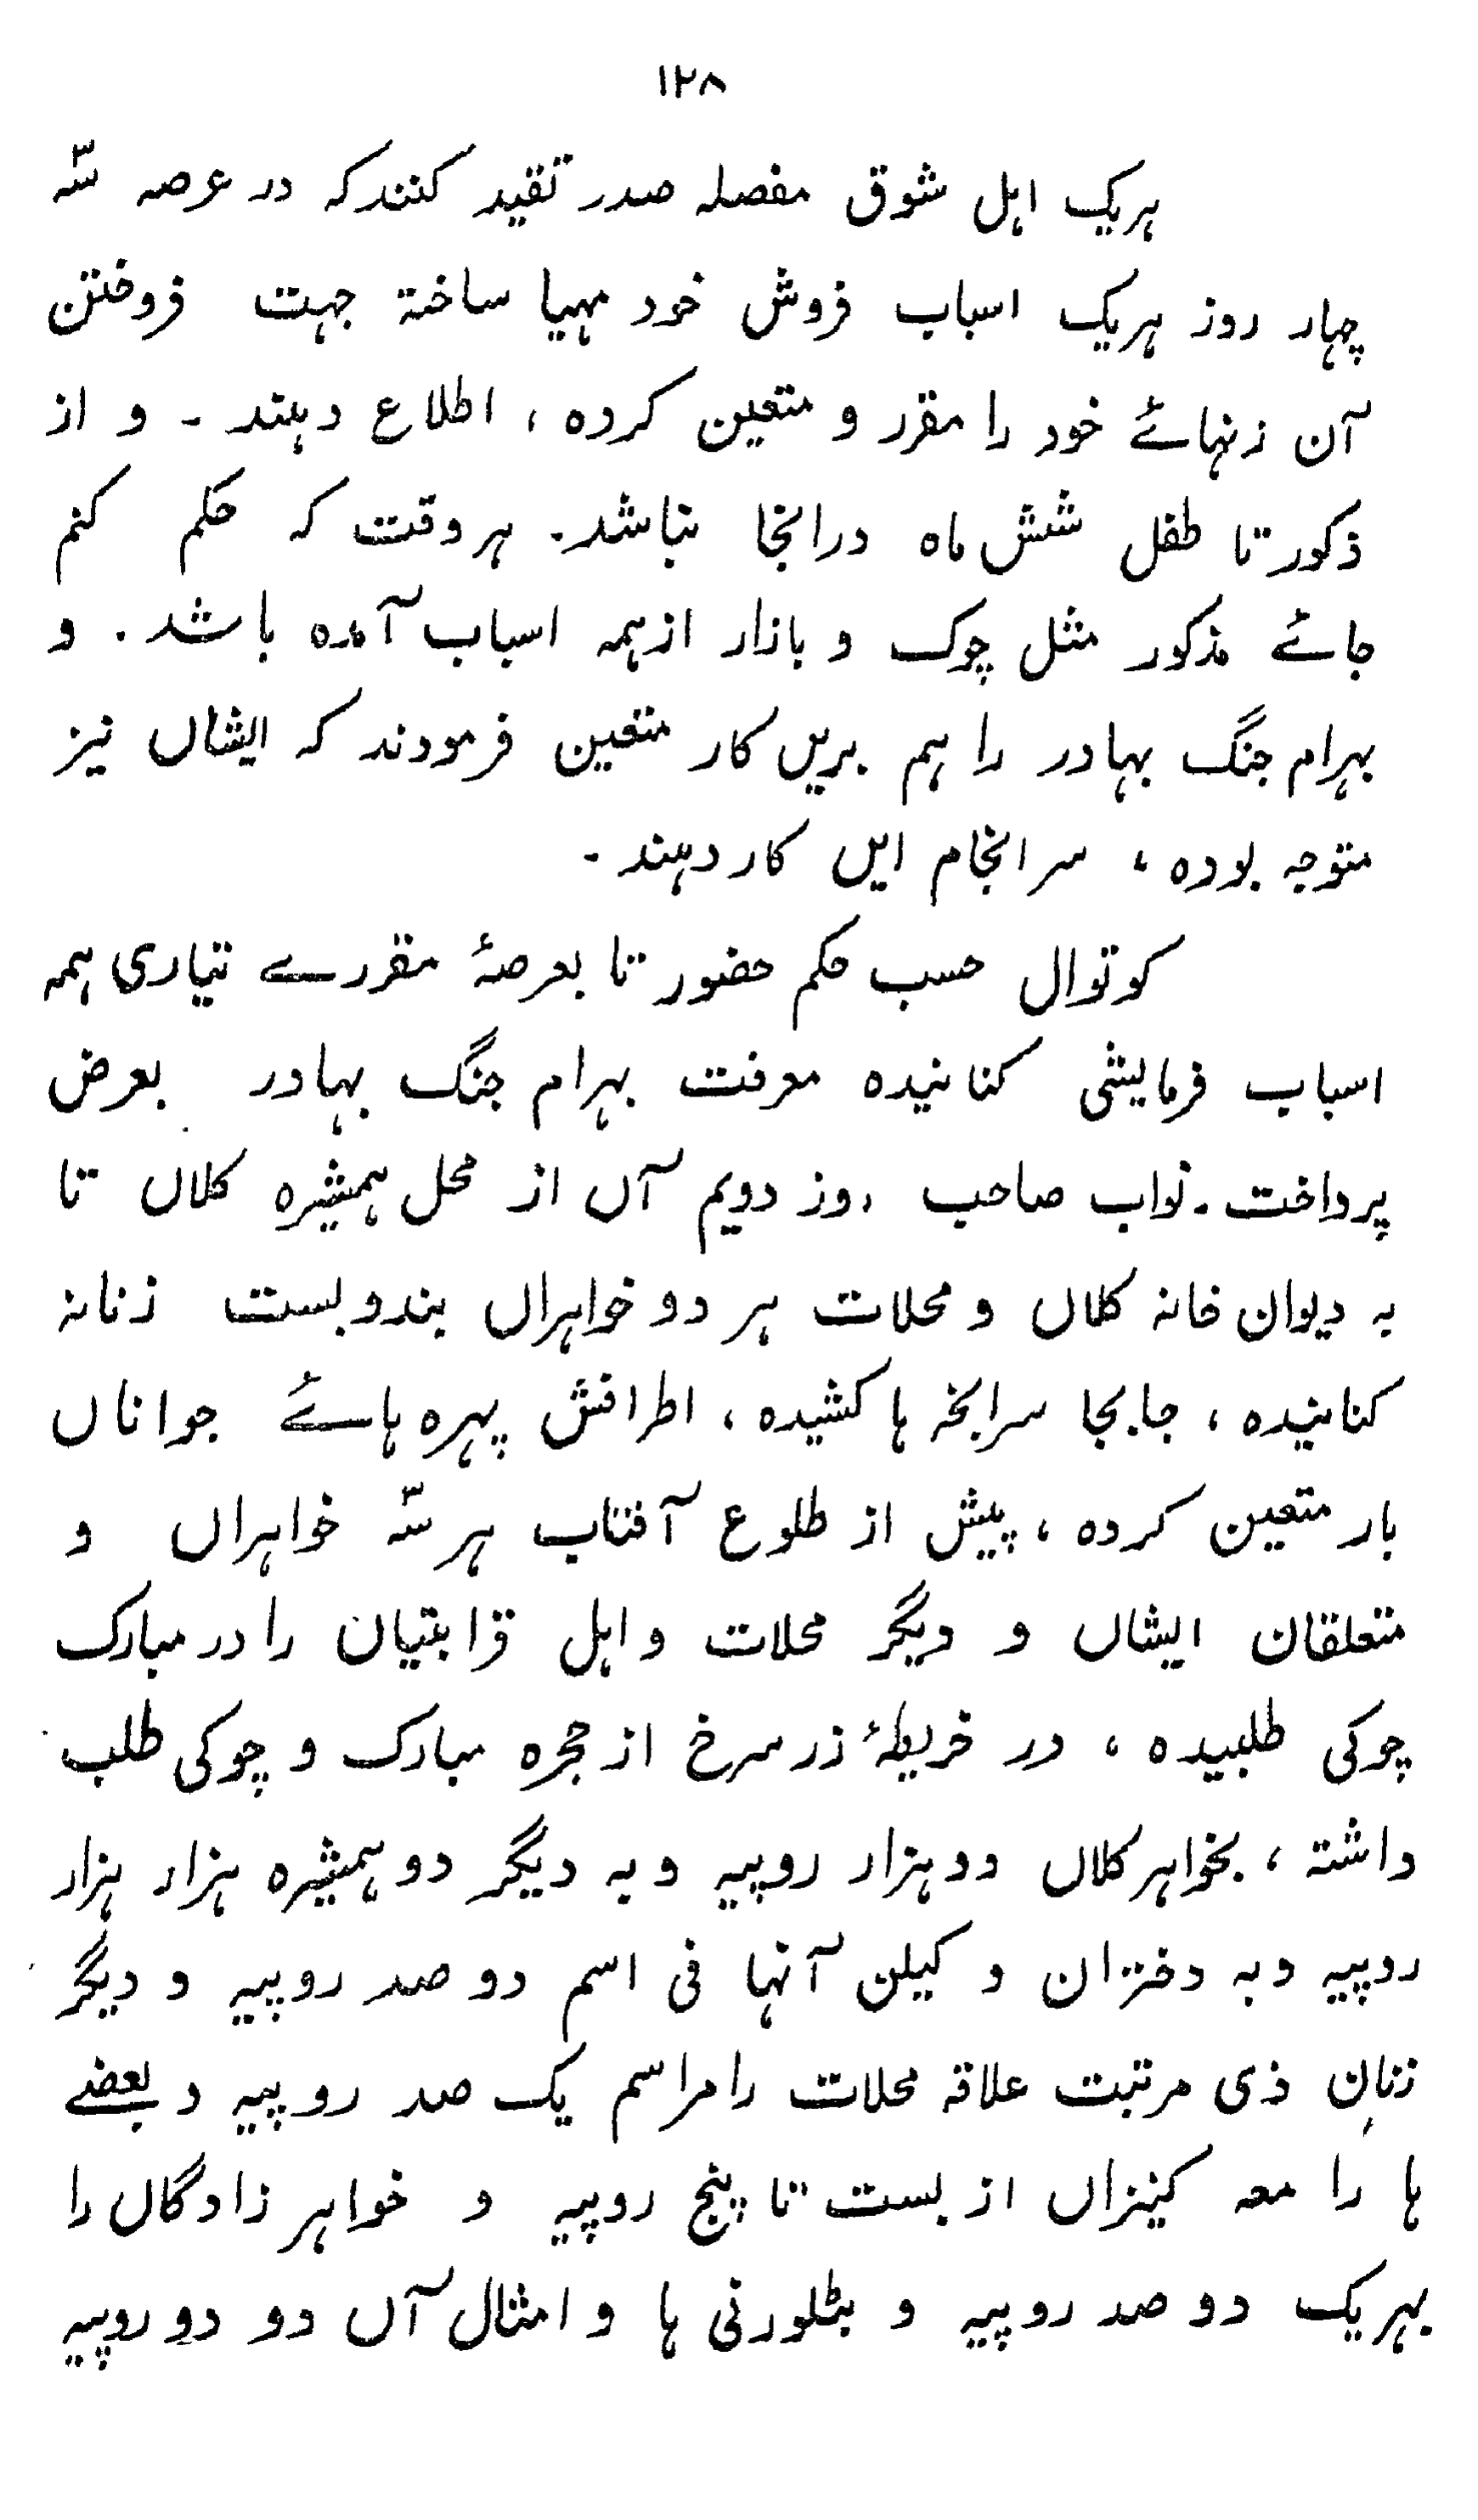 ۱۲۸
ہریک اہل شوق مفصلہ صدر تقید کنند کہ در عرصہ سہّ
چہار روز ہریک اسباب فروش خود مہیا ساختہ جہت فروختن
آن زنہائے خود را مقرر و متعین کردہ، اطلاع دہند ۔ و از
ذکور تا طفل شش ماہ درانجا نباشد۔ ہر وقت کہ حکم کنم
جائے مذکور مثل چوک و بازار از ہمہ اسباب آمدہ باشد۔ و
بہرام جنگ بہادر را ہم بریں کار متعین فرمودند کہ ایشاں نیز
متوجہ بودہ، سرانجام ایں کار دہند ۔
کوتوال حسب حکم حضور تا بعرصۂ مقررے تیاری ہمہ
اسباب فرمایشی کنانیدہ معرفت بہرام جنگ بہادر بعرض
پرداخت۔ نواب صاحب روز دویم آں از محل ہمشیرہ کلاں تا
بہ دیوان خانہ کلاں و محلات ہر دو خواہراں بندوبست زنانہ
کنانیدہ، جابجا سرانچہ ہا کشیدہ، اطرافش پہرہ ہائے جواناں
بار متعین کردہ، پیش از طلوع آفتاب ہر سہّ خواہراں و
متعلقان ایشاں و دیگر محلات و اہل قرابتیان را در مبارک
چوکی طلبیدہ، در خریطۂ زر سرخ از حجرہ مبارک و چوکی طلب
داشتہ، بخواہر کلاں دو ہزار روپیہ و بہ دیگر دو ہمشیرہ ہزار ہزار
روپیہ و بہ دختران و کیلن آنہا فی اسم دو صد روپیہ و دیگر
زنانِ ذی مرتبت علاقہ محلات را مراسم یک صد روپیہ و بعضے
ہا را معہ کنیزاں از بست تا پنج روپیہ و خواہر زادگاں را
بہریک دو صد روپیہ و بٹلورنی ہا و امثال آں دو دو روپیہ